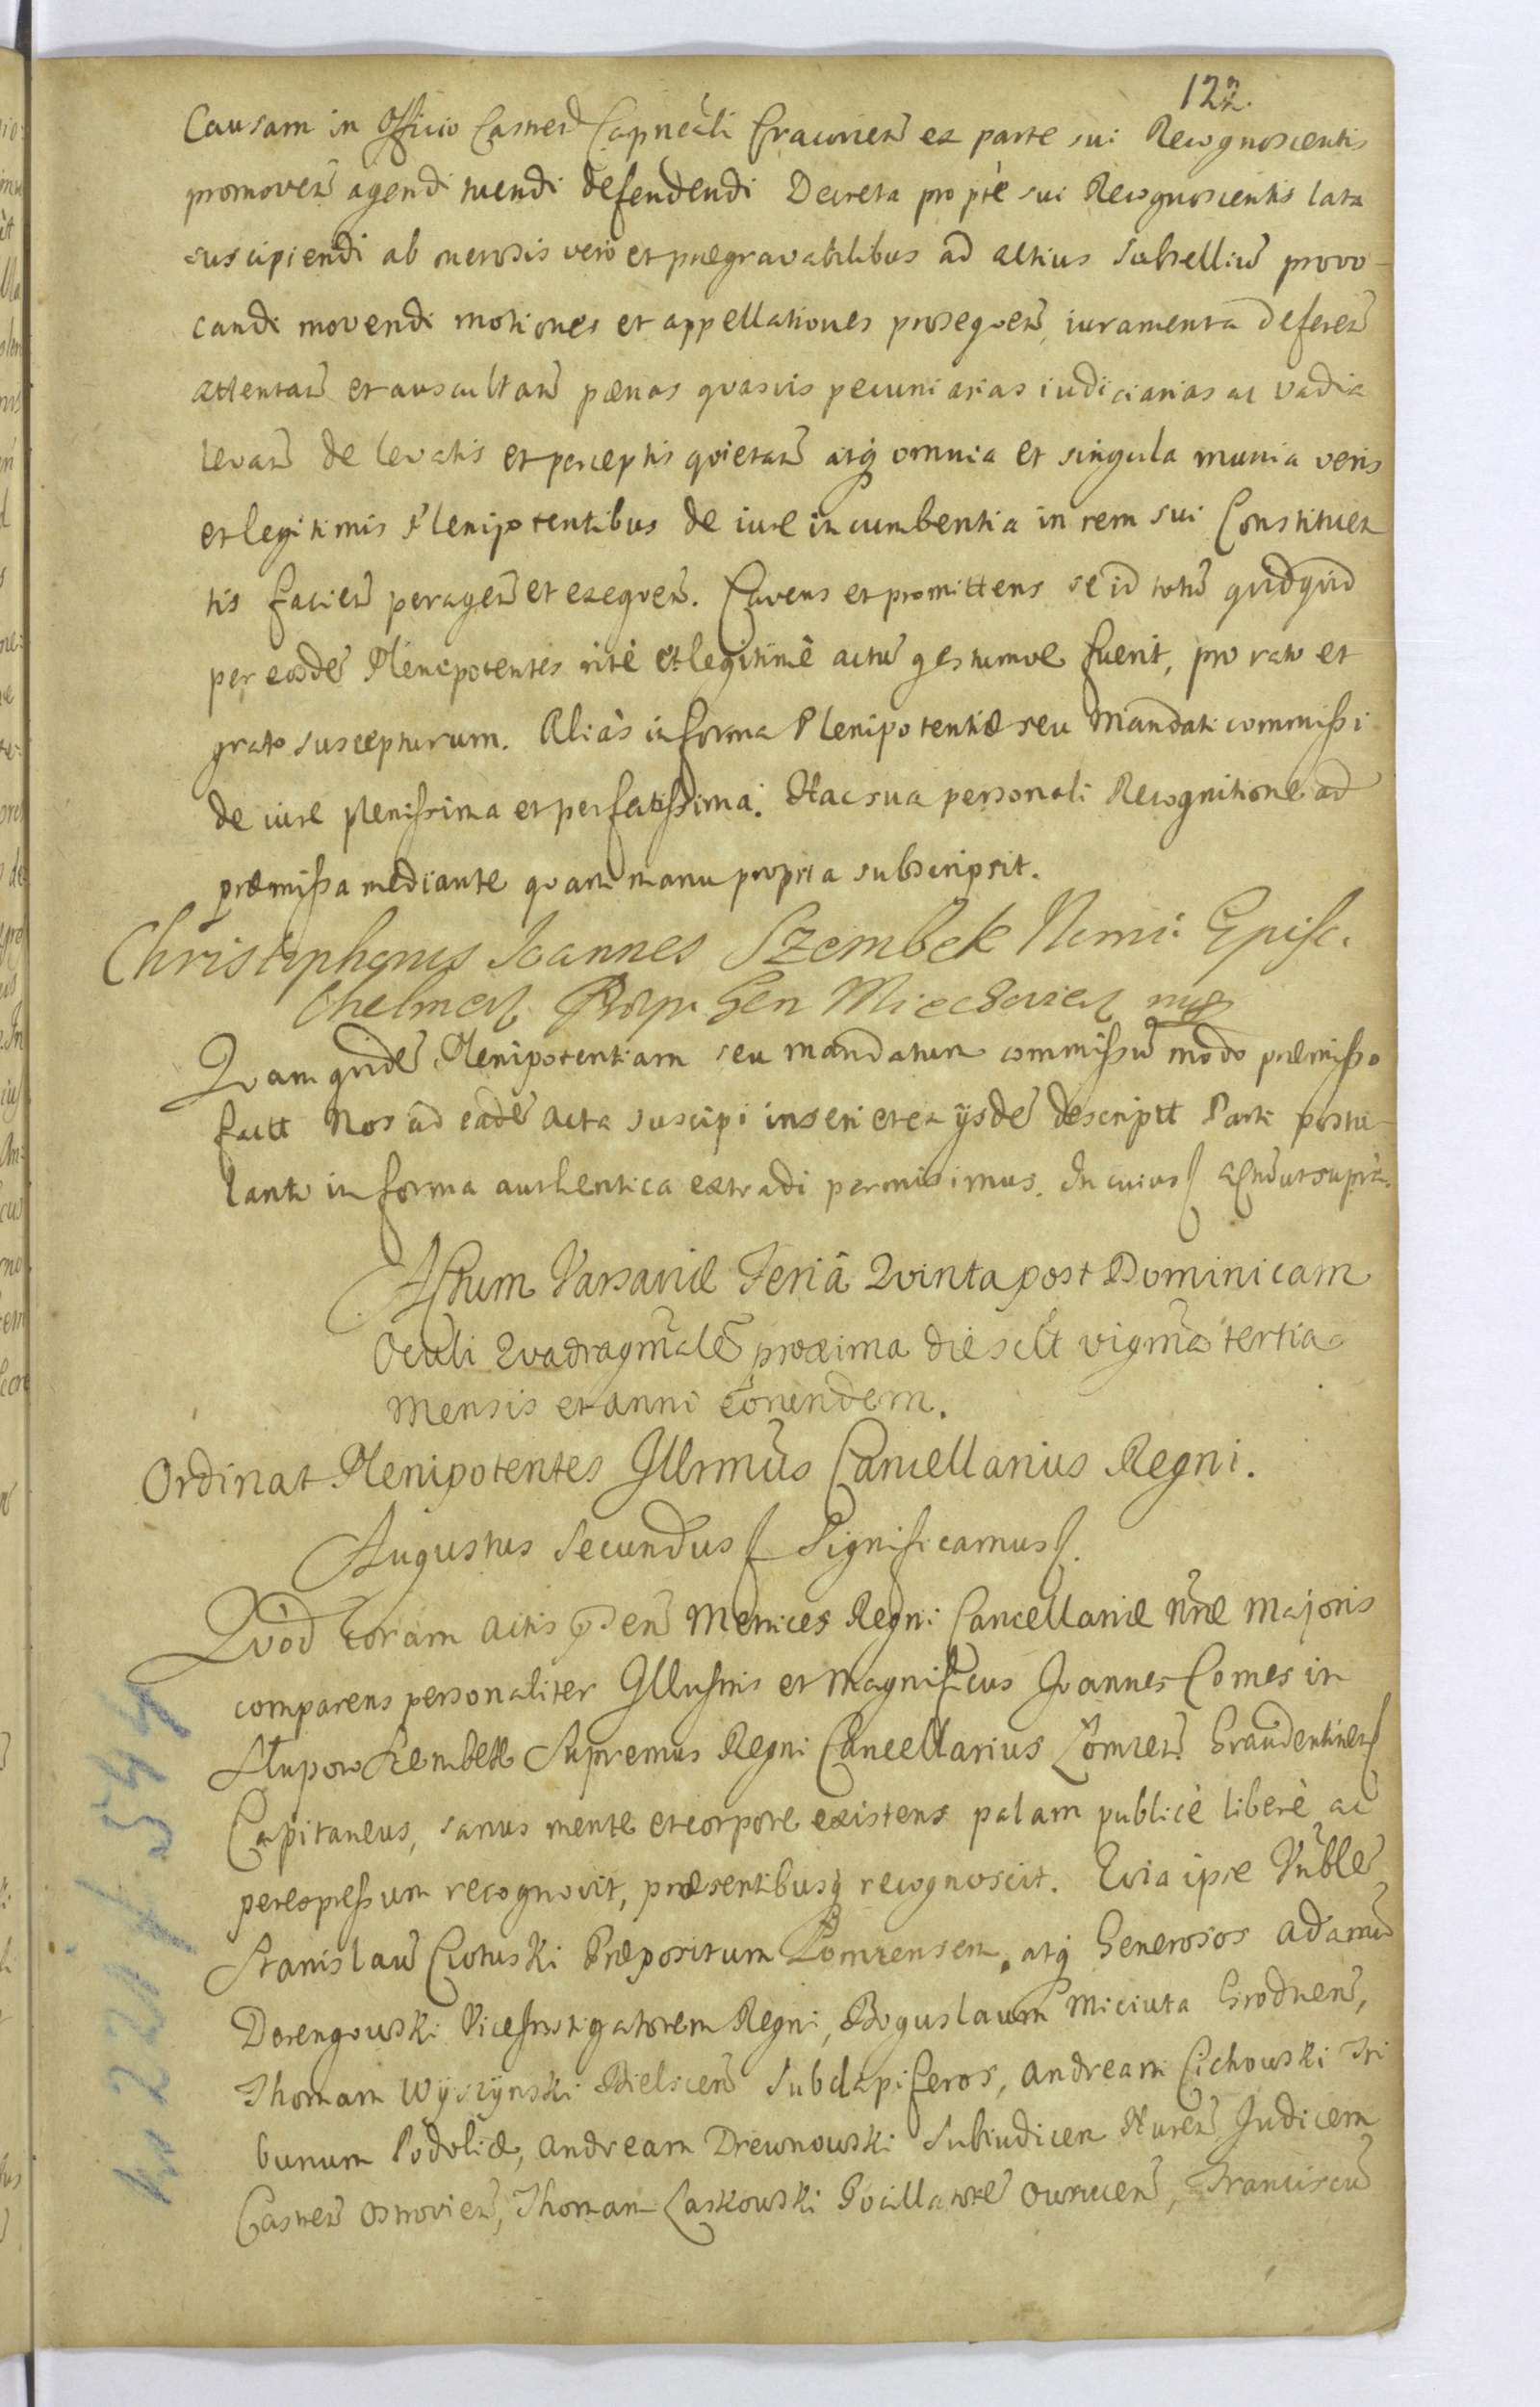 122.
Causam in Officio Castren̄ Capneāli Cracovien̄ ex parte sui Recognoscentis
promoven̄ agendi tuendi defendendi Decreta pro pte sui Recognoscentis lata
suscipiendi ab onerosis vero et prægravabilibus ad altius Subselliū provo-
candi movendi motiones et appellationes prosequen̄, iuramenta deferen̄
attentan̄ et auscultan̄ pœnas quasvis pecuniarias iudiciarias ac vadia
levan̄ de levatis et perceptis quietan̄ atq; omnia et singula munia veris
et legitimis Plenipotentibus de iure incumbentia in rem sui Constituen
tis facien̄ peragen̄ et exequen̄. Cavens et promittens se id totū quidquid
per eosdē Plenipotentes ritè et legitimè actū gestumve fuerit, pro rato et
grato suscepturum. Aliàs in forma Plenipotentiæ seu Mandati commissi
de iure plenissima et perfectissima. Hac sua personali Recognitione ad
præmissa mediante quam manu propria subscripsit.
Christophorus Joannes Szembek Nomi: Episc.
Chelmen Præp. Gen Miechovien mp
Quam quidē Plenipotentiam seu mandatum commissū modo præmisso
factt Nos ad eadē Acta suscipi inseri et ex ijsdē descriptt Parti postu-
lanti in forma authentica extradi permisimus. In cuius actū ut supra.
Actum Varsaviæ Feriâ Quinta post Dominicam
Oculi Quadragmālē proxima die scltt vigmā tertia
Mensis et anni eorundem.
Ordinat Plenipotentes Illrmūs Cancellarius Regni.
Augustus Secundus Significamus.
Quod coram Actis pn̄tien̄ Metrices Regni Cancellariæ Nræ Majoris
comparens personaliter Illustris et Magnificus Joannes Comes in
Słupow Szembek Supremus Regni Cancellarius Łomzen̄ Graudentinen
Capitaneus, sanus mente et corpore existens palam publicè liberè ac
per expressum recognovit, præsentibusq; recognoscit. Quia ipse Vnblē
Stanislaū Crotuski Præpositum Łomzensem, atq; Generosos Adamū
Dorengowski Vice Instigatorem Regni, Boguslaum Miciuta Grodnen̄,
Thomam Wyszynski Bielscen̄ Subdapiferos, Andream Cichowski Tri
bunum Podoliæ, Andream Drewnowski Subiudicem Nuren̄ Judicem
Castren̄ Ostrovien̄, Thomam Laskowski Pocillatorē Owrucen̄, Franciscū